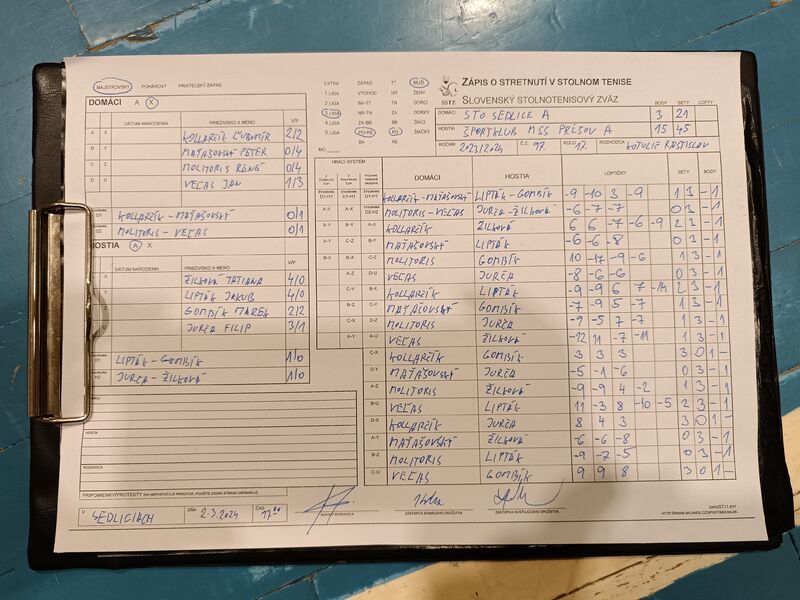 MAJSTROVSKÝ POHÁROVÝ PRIATEĽSKÝ ZÁPAS
DOMÁCI A X
DÁTUM NARODENIA PRIEZVISKO A MENO V/P
A X KOLLARČÍK ĽUBOMÍR 2/2
B Y MAŤAŠOVSKÝ PETER 0/4
C Z MOLITORIS RENÉ 0/4
D U VEĽAS JÁN 1/3
D1 KOLLARČÍK - MAŤAŠOVSKÝ 0/1
D2 MOLITORIS - VEĽAS 0/1
HOSTIA A X
DÁTUM NARODENIA PRIEZVISKO A MENO V/P
ŽILKOVÁ TATIANA 4/0
LIPTÁK JAKUB 4/0
GOMBÍK MAREK 2/2
JURČA FILIP 3/1
LIPTÁK - GOMBÍK 1/0
JURČA - ŽILKOVÁ 1/0
DOMÁCI
HOSTIA
ROZHODCA
PRIPOMIENKY/PROTESTY (AK NEPOSTAČUJE PRIESTOR, POUŽITE ZADNÚ STRANU ORIGINÁLU)
V SEDLICIACH DŇA 2.3.2024 ČAS 17
EXTRA ZÁPAD TT MUŽI
1. LIGA VÝCHOD NR ŽENY
2. LIGA BA-TT TN DORCI
3. LIGA NR-TN ZA DORKY
4. LIGA ZA-BB BB ŽIACI
5. LIGA PO-KE PO ŽIAČKY
MO BA KE
SSTZ
ZÁPIS O STRETNUTÍ V STOLNOM TENISE
SLOVENSKÝ STOLNOTENISOVÝ ZVÄZ
BODY SETY LOPTY
DOMÁCI STO SEDLICE A 3 21
HOSTIA ŠPORTKLUB MŠŠ PREŠOV A 15 45
ROČNÍK 2023/2024 Č.Z. 97. KOLO 17. ROZHODCA KOTULIČ RASTISLAV
HRACÍ SYSTÉM DOMÁCI HOSTIA LOPTIČKY SETY BODY
KOLLARČÍK-MAŤAŠOVSKÝ LIPTÁK-GOMBÍK -9 -10 3 -9 1 3 - 1
MOLITORIS-VEĽAS JURČA-ŽILKOVÁ -6 -7 -7 0 3 - 1
KOLLARČÍK ŽILKOVÁ 6 6 -7 -6 -9 2 3 - 1
MAŤAŠOVSKÝ LIPTÁK -6 -6 -8 0 3 - 1
MOLITORIS GOMBÍK 10 -17 -9 -6 1 3 - 1
VEĽAS JURČA -8 -6 -6 0 3 - 1
KOLLARČÍK LIPTÁK -9 -9 6 7 -14 2 3 - 1
MAŤAŠOVSKÝ GOMBÍK -7 -9 5 -7 1 3 - 1
MOLITORIS JURČA -9 -5 7 -7 1 3 - 1
VEĽAS ŽILKOVÁ -12 11 -7 -11 1 3 - 1
C-X KOLLARČÍK GOMBÍK 3 3 3 3 0 1 -
D-Y MAŤAŠOVSKÝ JURČA -5 -1 -6 0 3 - 1
A-Z MOLITORIS ŽILKOVÁ -9 -9 4 -2 1 3 - 1
B-U VEĽAS LIPTÁK 11 -3 8 -10 -5 2 3 - 1
D-X KOLLARČÍK JURČA 8 4 3 3 0 1 -
A-Y MAŤAŠOVSKÝ ŽILKOVÁ -6 -6 -8 0 3 - 1
B-Z MOLITORIS LIPTÁK -9 -7 -5 0 3 - 1
C-U VEĽAS GOMBÍK 9 9 8 3 0 1 -
ZÁSTUPCA DOMÁCEHO DRUŽSTVA ZÁSTUPCA HOSŤUJÚCEHO DRUŽSTVA